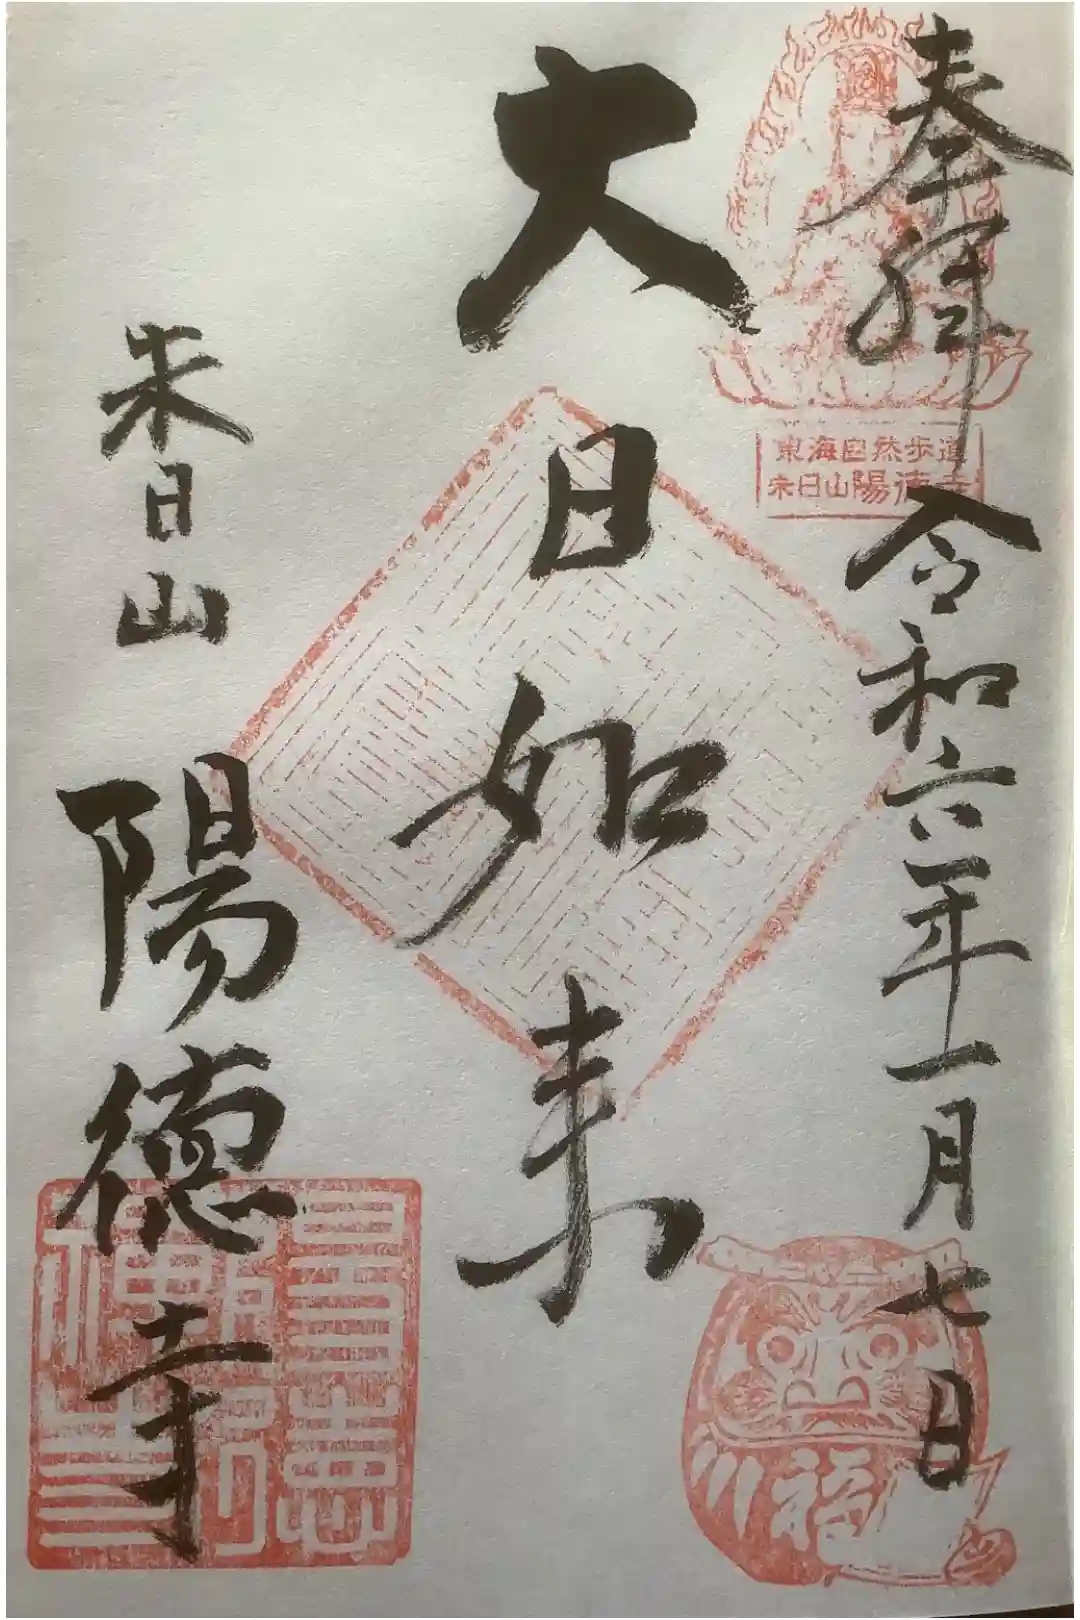 奉拝 令和六年一月七日
東海自然歩道
朱日山陽徳寺
福
大日如来
朱日山 陽徳寺